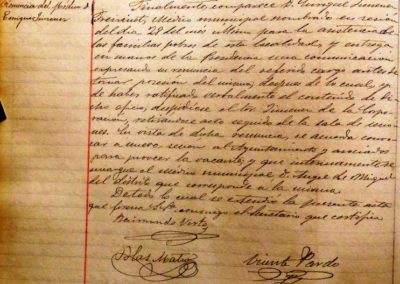 Renuncia del Medico D.
Enrique Jimenez
Finalmente comparece D. Enrique Jimenez
Medico municipal nombrado en sesion
del dia 28 del mes ultimo para la asistencia de
las familias pobres de esta localidad, y entrega
en manos de la Presidencia una comunicacion
expresando su renuncia del referido cargo antes de
tomar posesion del mismo; despues de lo cual y
de haber ratificado verbalmente el contenido de di-
cho oficio, despidiose el Sr. Jimenez de la Corpo-
racion, retirandose acto seguido de la sala de sesio-
nes. En vista de dicha renuncia, se acuerda convo-
car a nueva sesion al Ayuntamiento y asociados
para proveer la vacante, y que interinamente se
encargue el Medico municipal D. Angel de Miguel
del distrito que corresponde a la misma.
De todo lo cual se extendio la presente acta
que firma S.S. conmigo el Secretario que certifico
Raimundo
Blas Mateo
Vicente Pardo